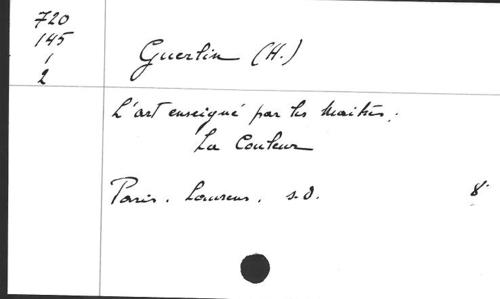 720
145
1
2
Guerlin (H.)
L'art enseigné par les Maîtres.
La Couleur
Paris. Laurens. s.d. 8°